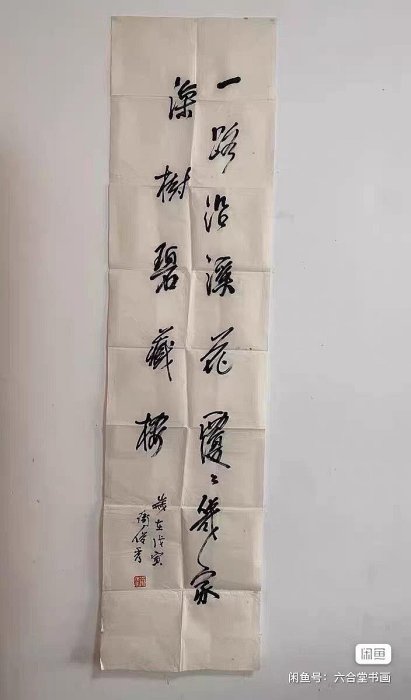 一路沿溪花覆水幾家
深樹碧藏樓
歲在戊寅
衛俊秀
闲鱼
闲鱼号：六合堂书画